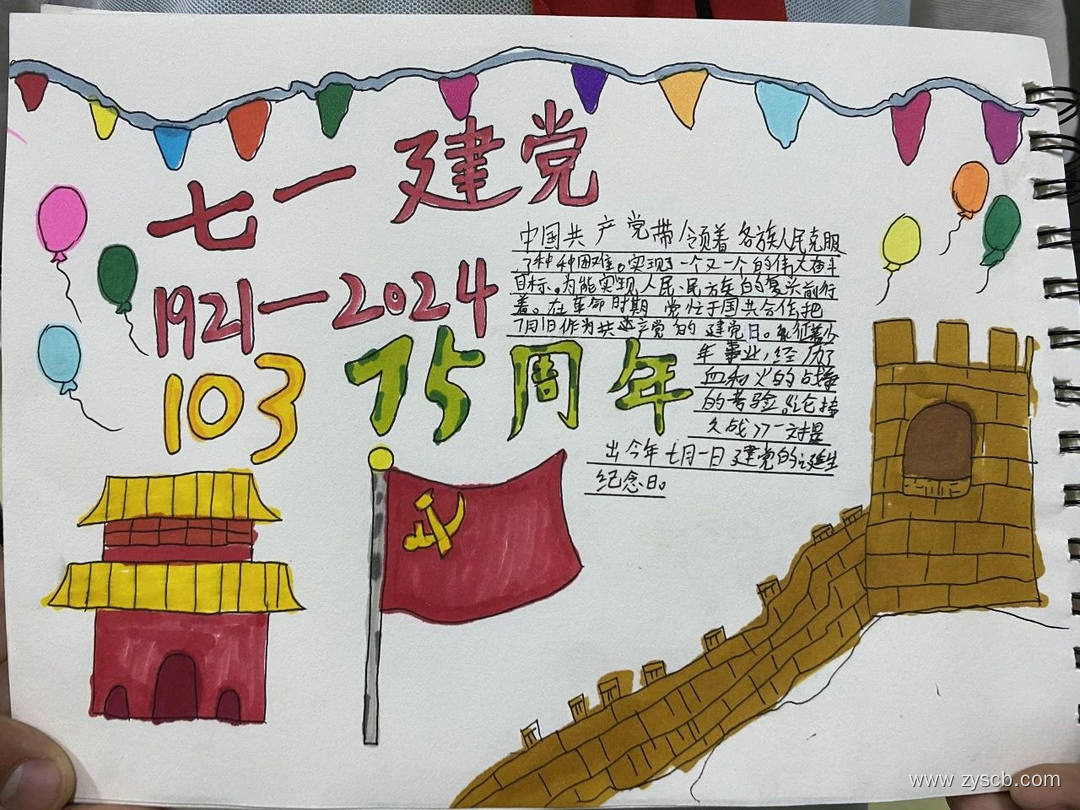 七一建党
1921—2024
103 75周年
中国共产党带领着各族人民克服
了种种困难。实现了一个又一个的伟大奋斗
目标。为能实现人民、民族的复兴前行
着。在革命时期 党处于国共合作把
7月1日作为共产党的建党日。
年事业,经历了
血和火的战争
的考验。《论持
久战》一对提
出今年七月一日建党的诞生
纪念日。
www.zyscb.com